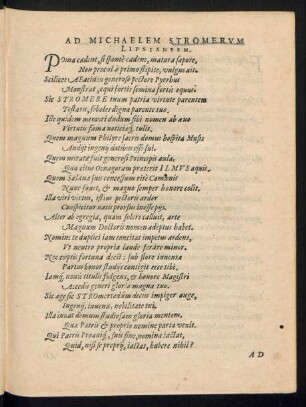 AD MICHAELEM STROMERVM
LIPSIENSEM.
POma cadent, si sponte cadent, matura sapore,
Non procul à primo stipite, vulgus ait.
Scilicet Æacidem generoso pectore Pyrrhus
Monstrat, equi fortis semina fortis equus:
Sic STROMERE tuum patria virtute parentem
Testaris, soboles digna parente tuo,
Ille quidem meruit dudum sibi nomen ab auo
Virtutis fama notitiaq; tulit.
Quem magnum Philyre sacris domus hospita Musis
Audijt ingenij dotibus esse sui.
Quem mirata fuit generosi Principis aula,
Qua citus Ocnagoram præterit ILMVS aquis.
Quem Salana suis concessum rite Camœnis
Nunc fouet, & magno semper honore colit.
Illa viri virtus, istius pectoris ardor
Conspicitur natis prorsus inesse pijs.
Alter ab egregia, quam solers calluit, arte
Magnum Doctoris nomen adeptus habet.
Nomine te duplici iam concitat impetus ardens,
Vt neutro propria laude ferare minor.
Nec cœptis fortuna deest: sub flore iuuentæ
Partus honor studijs contigit ecce tibi,
Iamq; nouis titulis fulgens, & honore Magistri
Accedis generi gloria magna tuo.
Sic age sic STROmeriadum decus impiger auge,
Ingenij, iuuenis, nobilitate tui.
Illa iuuat demum studiosam gloria mentem,
Quæ Patrij & proprio nomine parta venit.
Qui Patrij Proauiq́;, sui sine, nomina iactat,
Quid, nisi se proprij, iactat, habere nihil?
AD